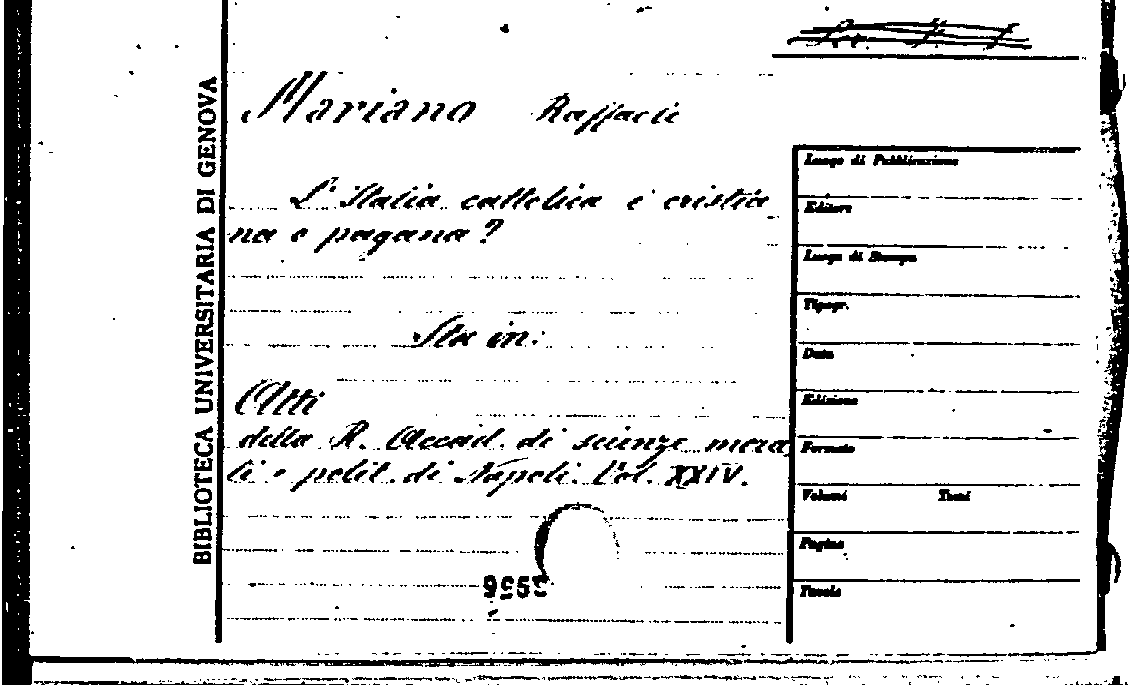 BIBLIOTECA UNIVERSITARIA DI GENOVA
Mariano Raffaele
L'Italia cattolica è cristia
na o pagana?
Sta in:
Atti
della R. Accad. di scienze mora
li e polit. di Napoli. Vol. XXIV.
Luogo di Pubblicazione
Editore
Luogo di Stampa
Tipogr.
Data
Edizione
Formato
Volumi Tomi
Pagine
Tavole